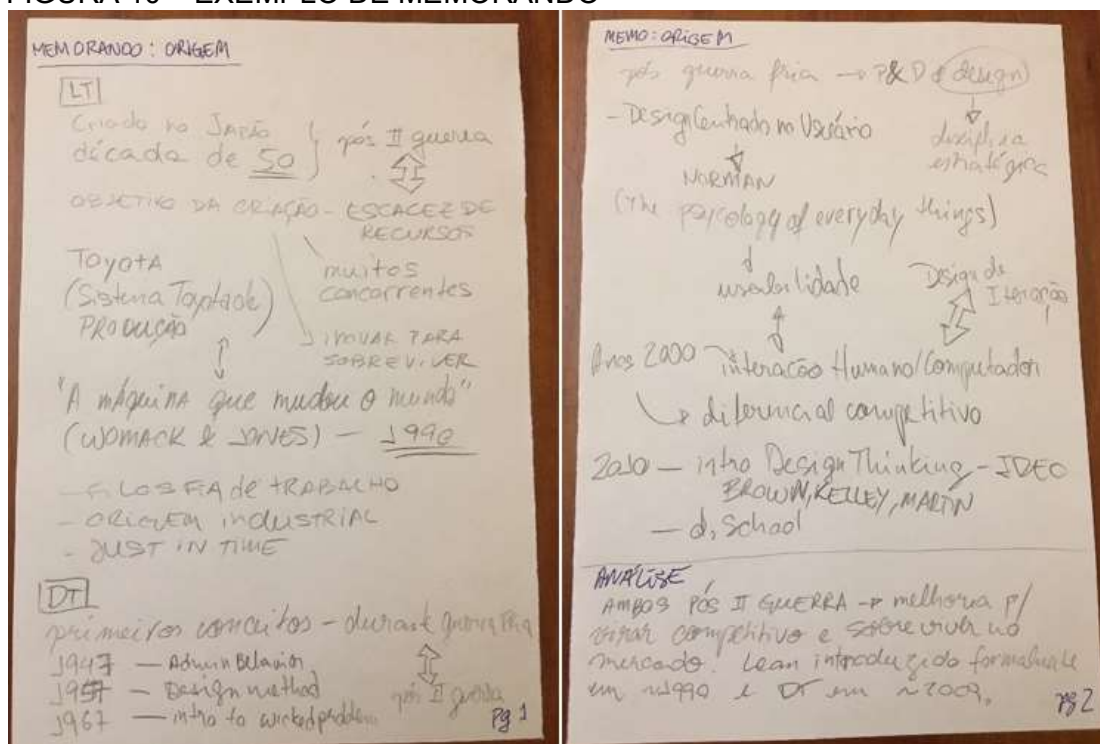 MEMORANDO: ORIGEM
LT
Criado no JAPÃO
década de 50
pós II guerra
OBJETIVO DA CRIAÇÃO - ESCACEZ DE
RECURSOS
muitos
concorrentes
INOVAR PARA
SOBREVIVER
Toyota
(Sistema
PRODUÇÃO
"A máquina que mudou o mundo"
(WOMACK & JONES) - 1990
- FILOSFIA de TRABALHO
- ORIGEM INDUSTRIAL
- JUST IN TIME
DT
primeiros conceitos - durante guerra fria
pós II guerra
1947 - Admin Behavior
1957 - Design method
1967 - intro to wicked problem
Pg 1
MEMO: ORIGEM
pós guerra fria → P&D e design
disciplina
estratégica
- Design Centrado no Usuário
NORMAN
(the psycology of everyday things)
usabilidade
Design de
Iteração
Anos 2000 → interacão Humano/Computador
→ diferencial competitivo
2010 - intro Design Thinking - IDEO
BROWN, KELLEY, MARTIN
- d.School
ANÁLISE
AMBOS PÓS II GUERRA → melhoria p/
virar competitivo e sobreviver no
mercado. Lean introduzido formalmente
em ~1990 e DT em ~2009.
pg 2